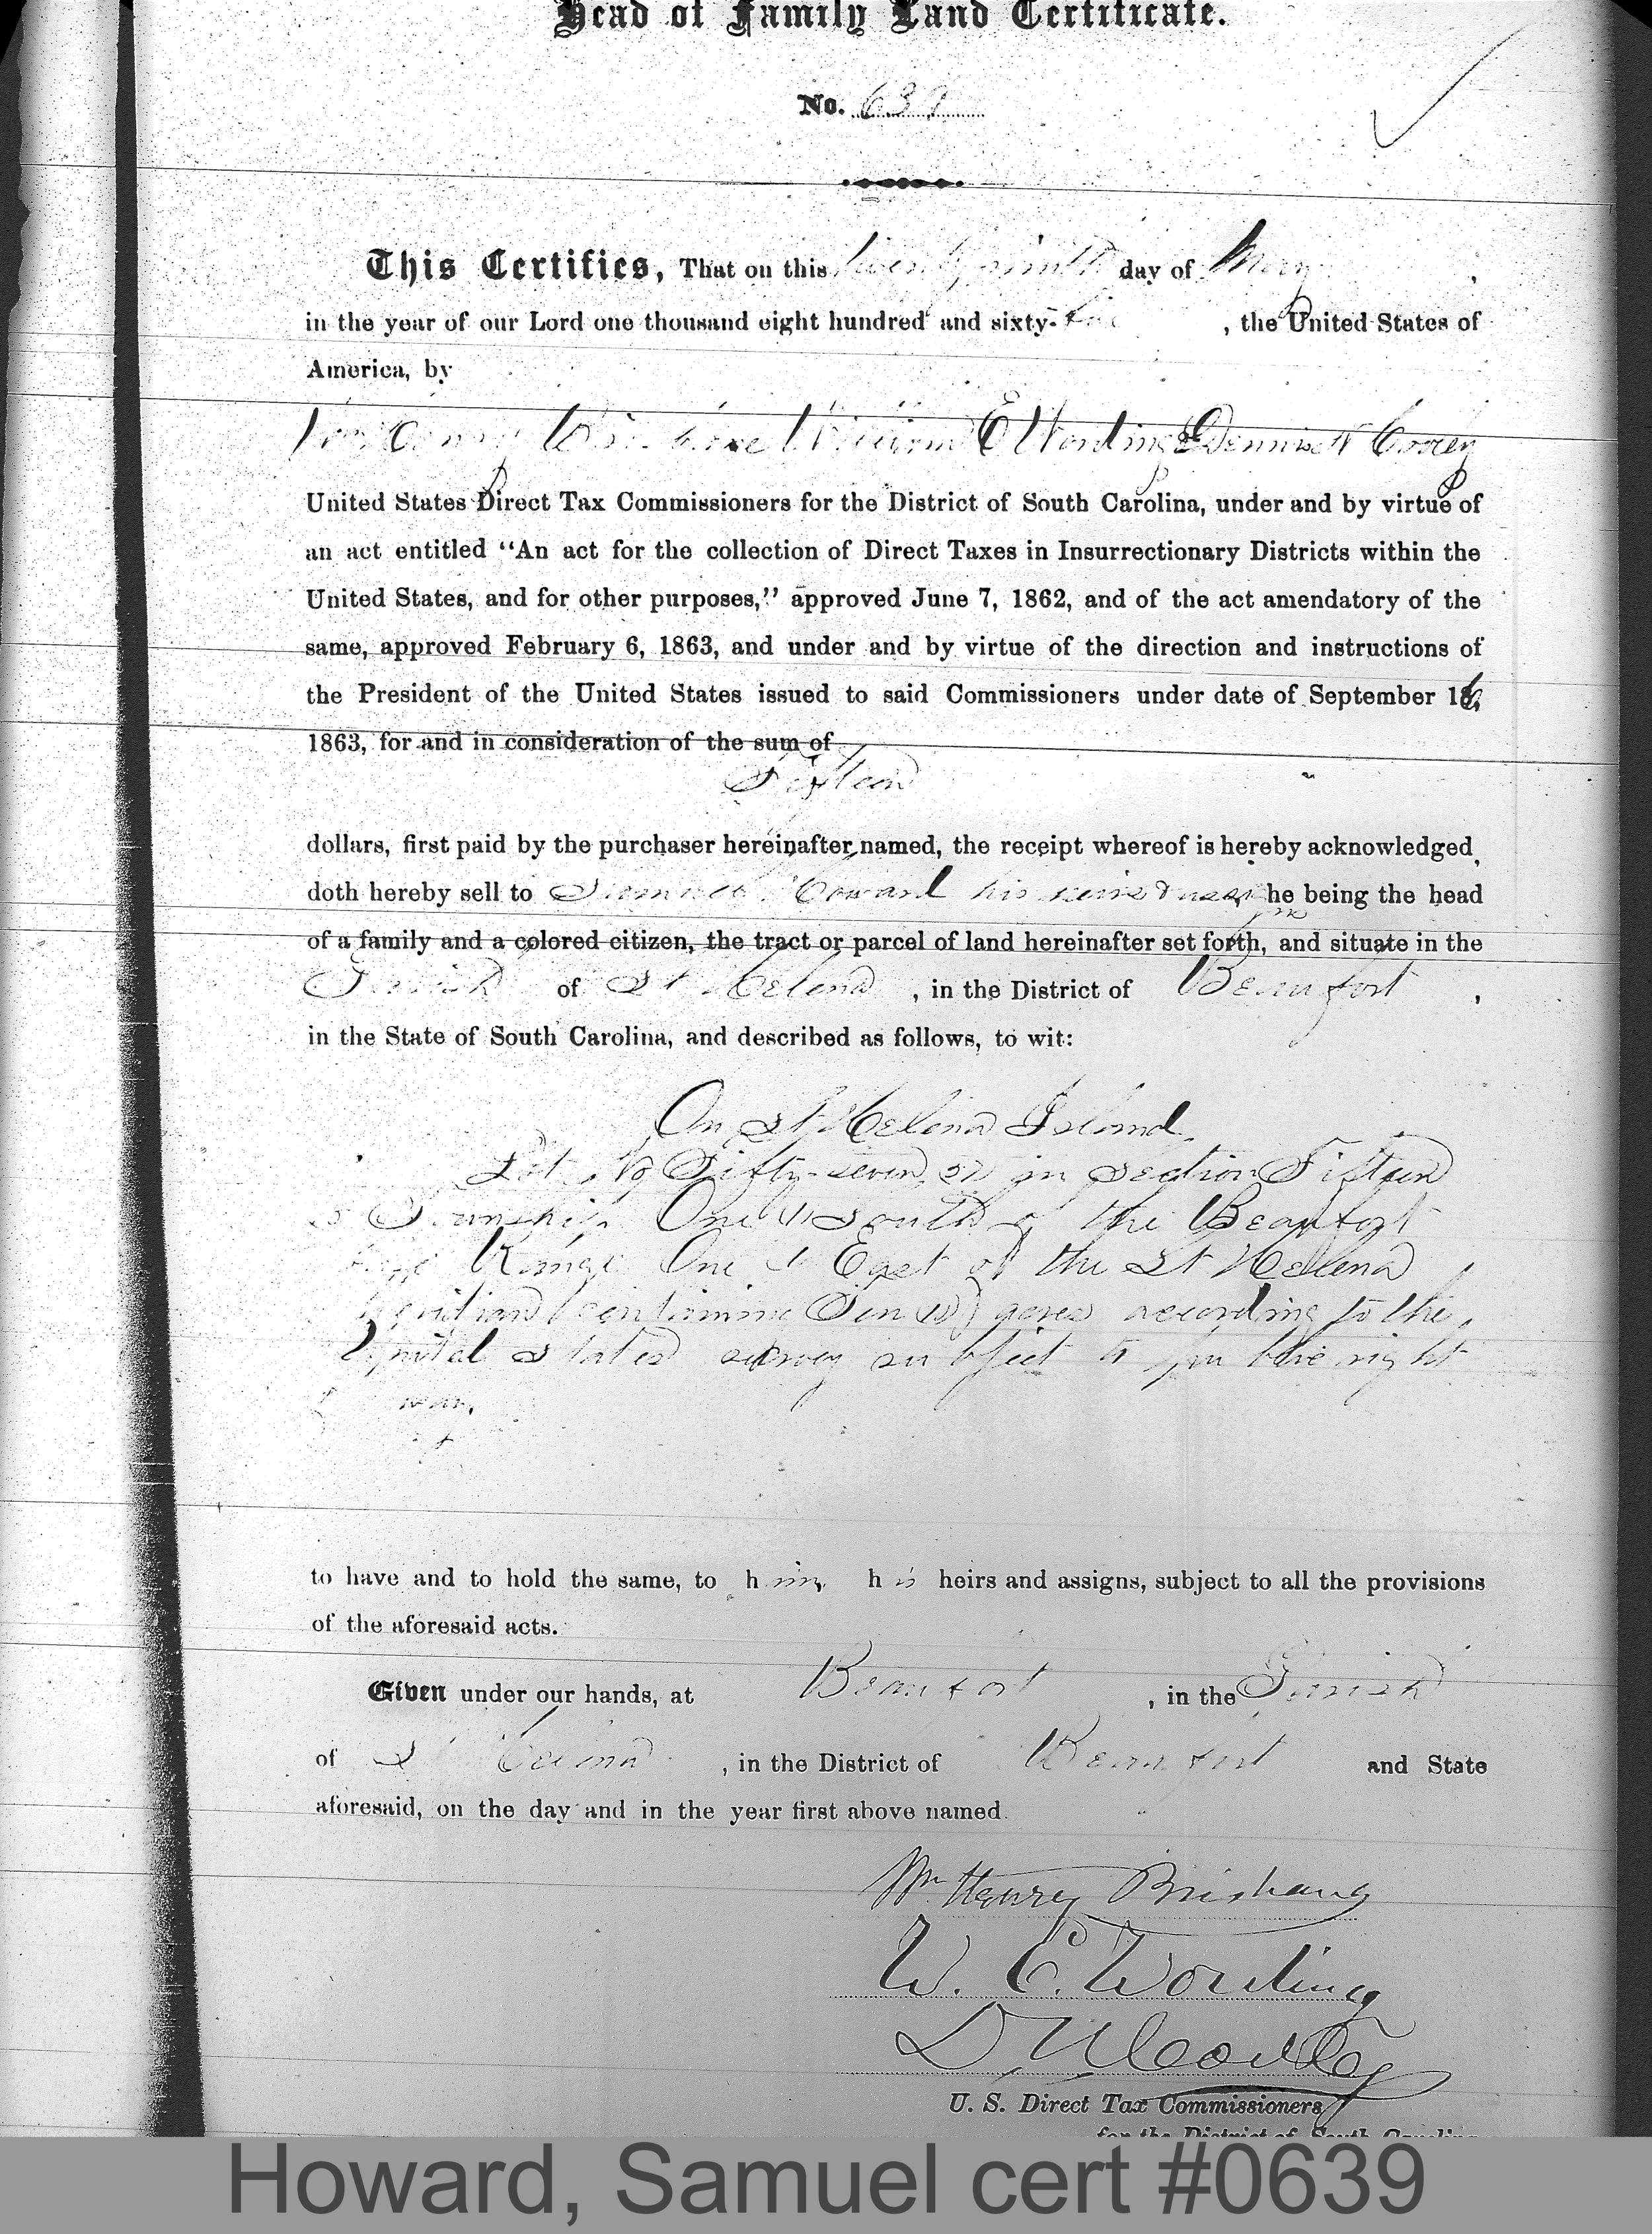 Head of Family Land Certificate.
No. 639
This Certifies, That on this twenty ninth day of May,
in the year of our Lord one thousand eight hundred and sixty-five, the United States of
America, by
Wm Henry Brisbane William E Wording & Dennis N Cooley
United States Direct Tax Commissioners for the District of South Carolina, under and by virtue of
an act entitled “An act for the collection of Direct Taxes in Insurrectionary Districts within the
United States, and for other purposes,” approved June 7, 1862, and of the act amendatory of the
same, approved February 6, 1863, and under and by virtue of the direction and instructions of
the President of the United States issued to said Commissioners under date of September 16,
1863, for and in consideration of the sum of
Fifteen
dollars, first paid by the purchaser hereinafter named, the receipt whereof is hereby acknowledged,
doth hereby sell to Samuel Howard his heirs & assigns he being the head
of a family and a colored citizen, the tract or parcel of land hereinafter set forth, and situate in the
Parish of St Helena, in the District of Beaufort,
in the State of South Carolina, and described as follows, to wit:
On St Helena Island
Lot No Fifty-seven 57 in Section Fifteen
15 Township One (1) South of the Beaufort
base Range One 1 East of the St Helena
Meridian containing Ten (10) acres according to the
United States survey subject to public right
of way.
to have and to hold the same, to him his heirs and assigns, subject to all the provisions
of the aforesaid acts.
Given under our hands, at Beaufort, in the Parish
of St Helena, in the District of Beaufort and State
aforesaid, on the day and in the year first above named.
Wm. Henry Brisbane
W. E. Wording
D. N. Cooley
U. S. Direct Tax Commissioners
for the District of South Carolina
Howard, Samuel cert #0639